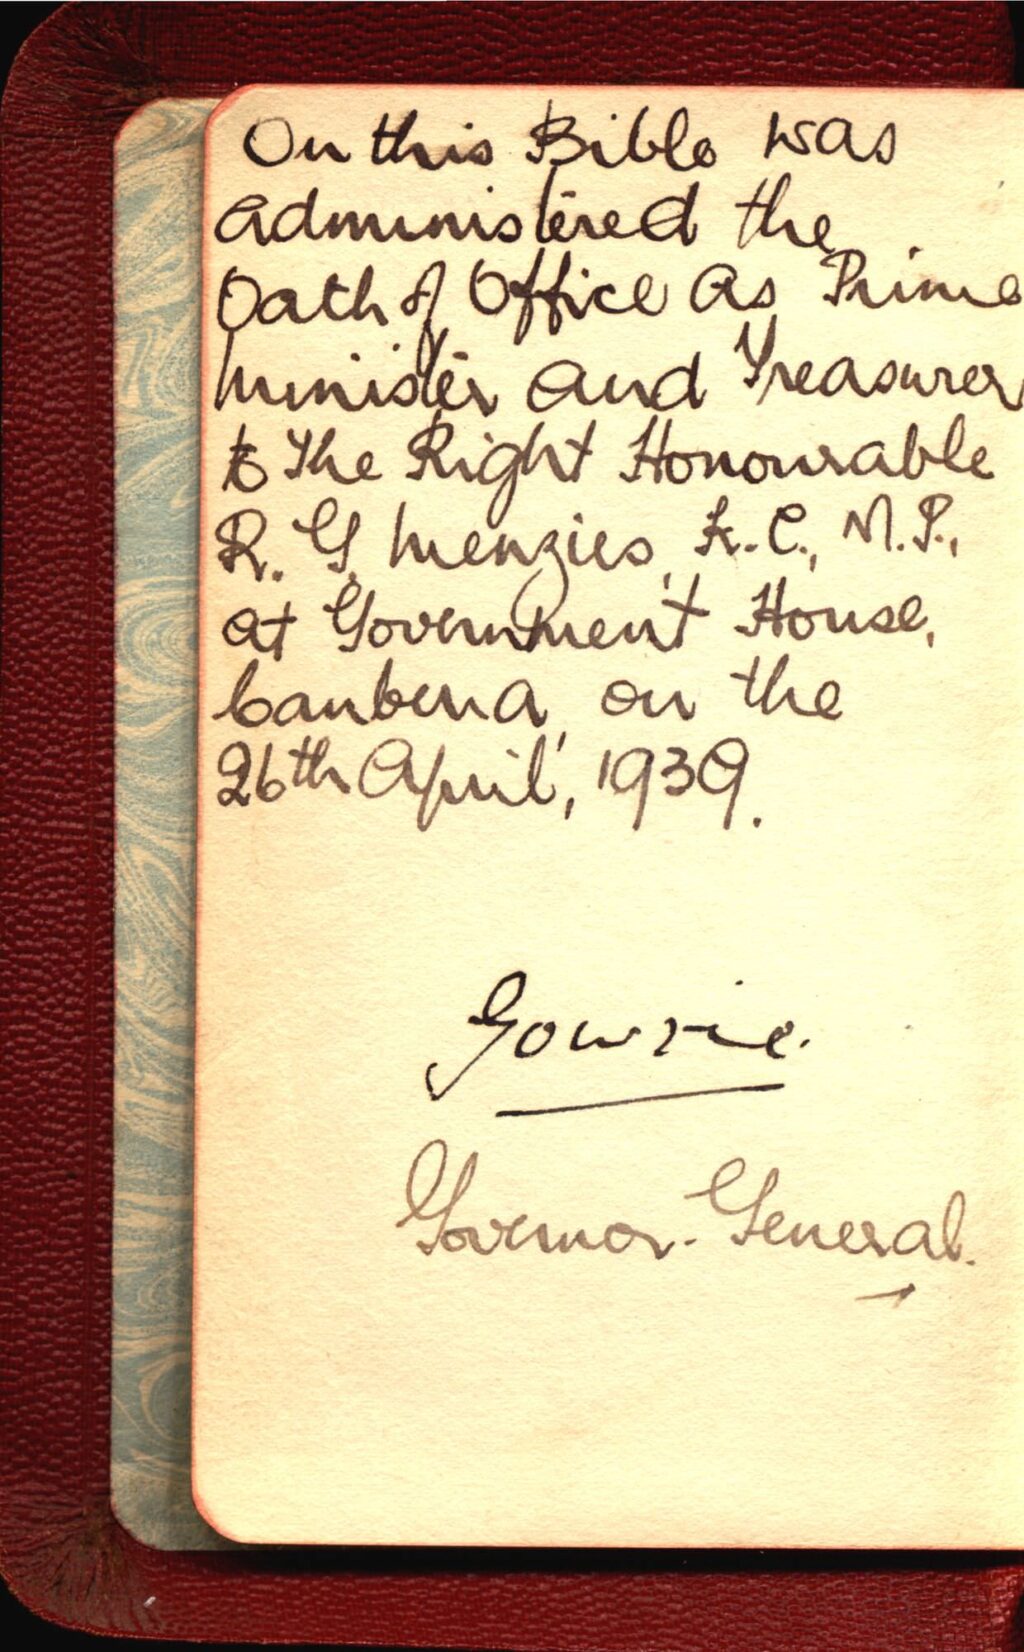 On this Bible was
administered the
Oath of Office as Prime
Minister and Treasurer
to The Right Honourable
R. G. Menzies, K.C., M.P.,
at Government House,
Canberra, on the
26th April, 1939.
Gowrie.
Governor-General.